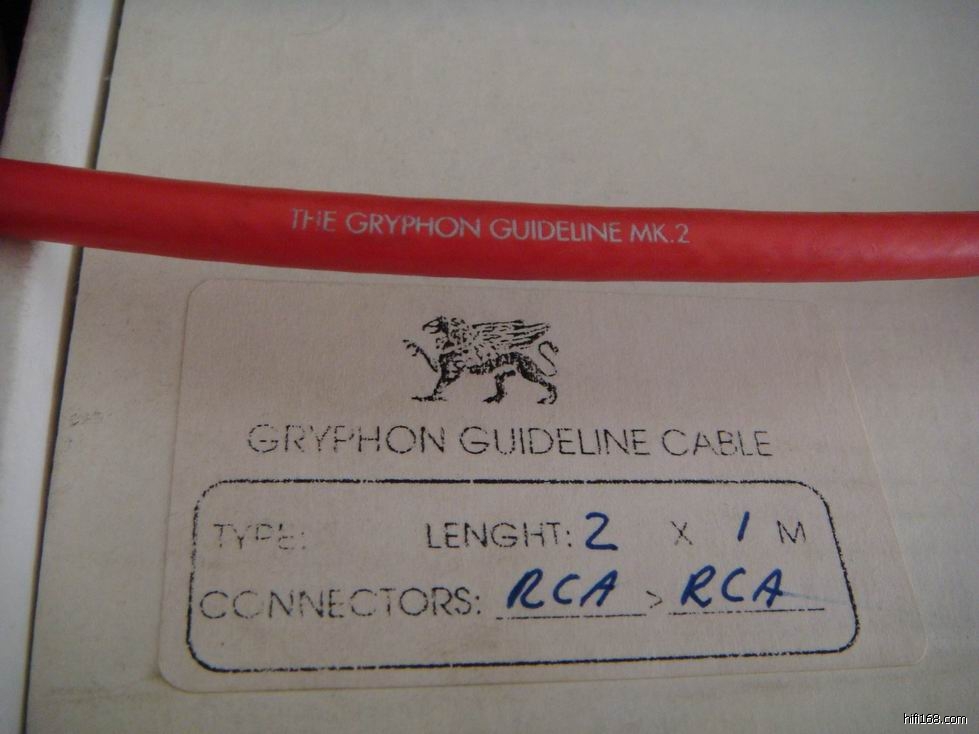 THE GRYPHON GUIDELINE MK.2
GRYPHON GUIDELINE CABLE
TYPE: LENGHT: 2 X 1 M
CONNECTORS: RCA > RCA
hifi168.com